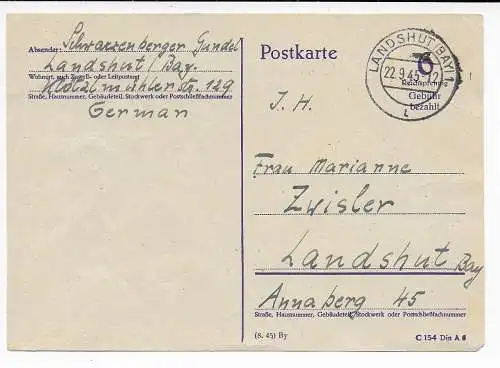 Absender: Schwarzenberger Gundel
Landshut / Bay.
Wohnort, auch Zustell- oder Leitpostamt
Klötzlmüller Str. 129
Straße, Hausnummer, Gebäudeteil, Stockwerk oder Postschließfachnummer
German
Postkarte
LANDSHUT (BAY) 1
22.9.45
6
Reichspfennig
Gebühr
bezahlt
J. H.
Frau Marianne
Zwisler
Landshut Bay
Annaberg 45
Straße, Hausnummer, Gebäudeteil, Stockwerk oder Postschließfachnummer
(8. 45) By
C 154 Din A 6